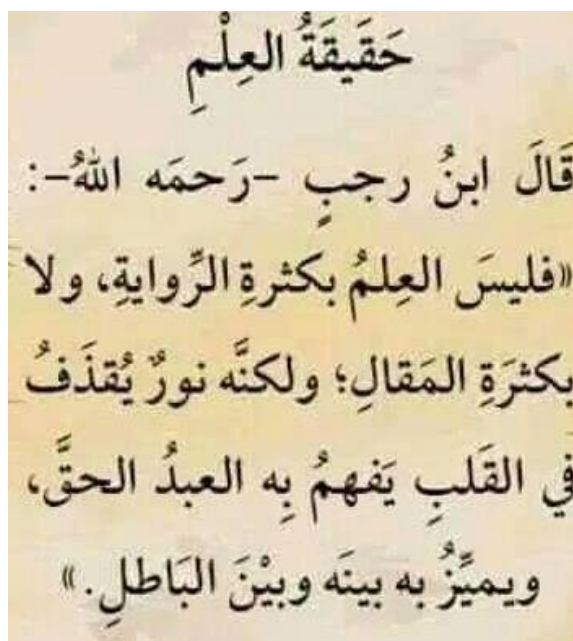 حَقَيقَةُ العِلْمِ
قَالَ ابنُ رجبٍ -رَحمَه اللهُ-:
«فليسَ العِلمُ بكثرةِ الرِّوايةِ، ولا
بكثرَةِ المَقالِ؛ ولكنَّه نورٌ يُقذَفُ
في القَلبِ يَفهمُ بِه العبدُ الحقَّ،
ويميِّزُ به بينَه وبيْنَ البَاطلِ.»